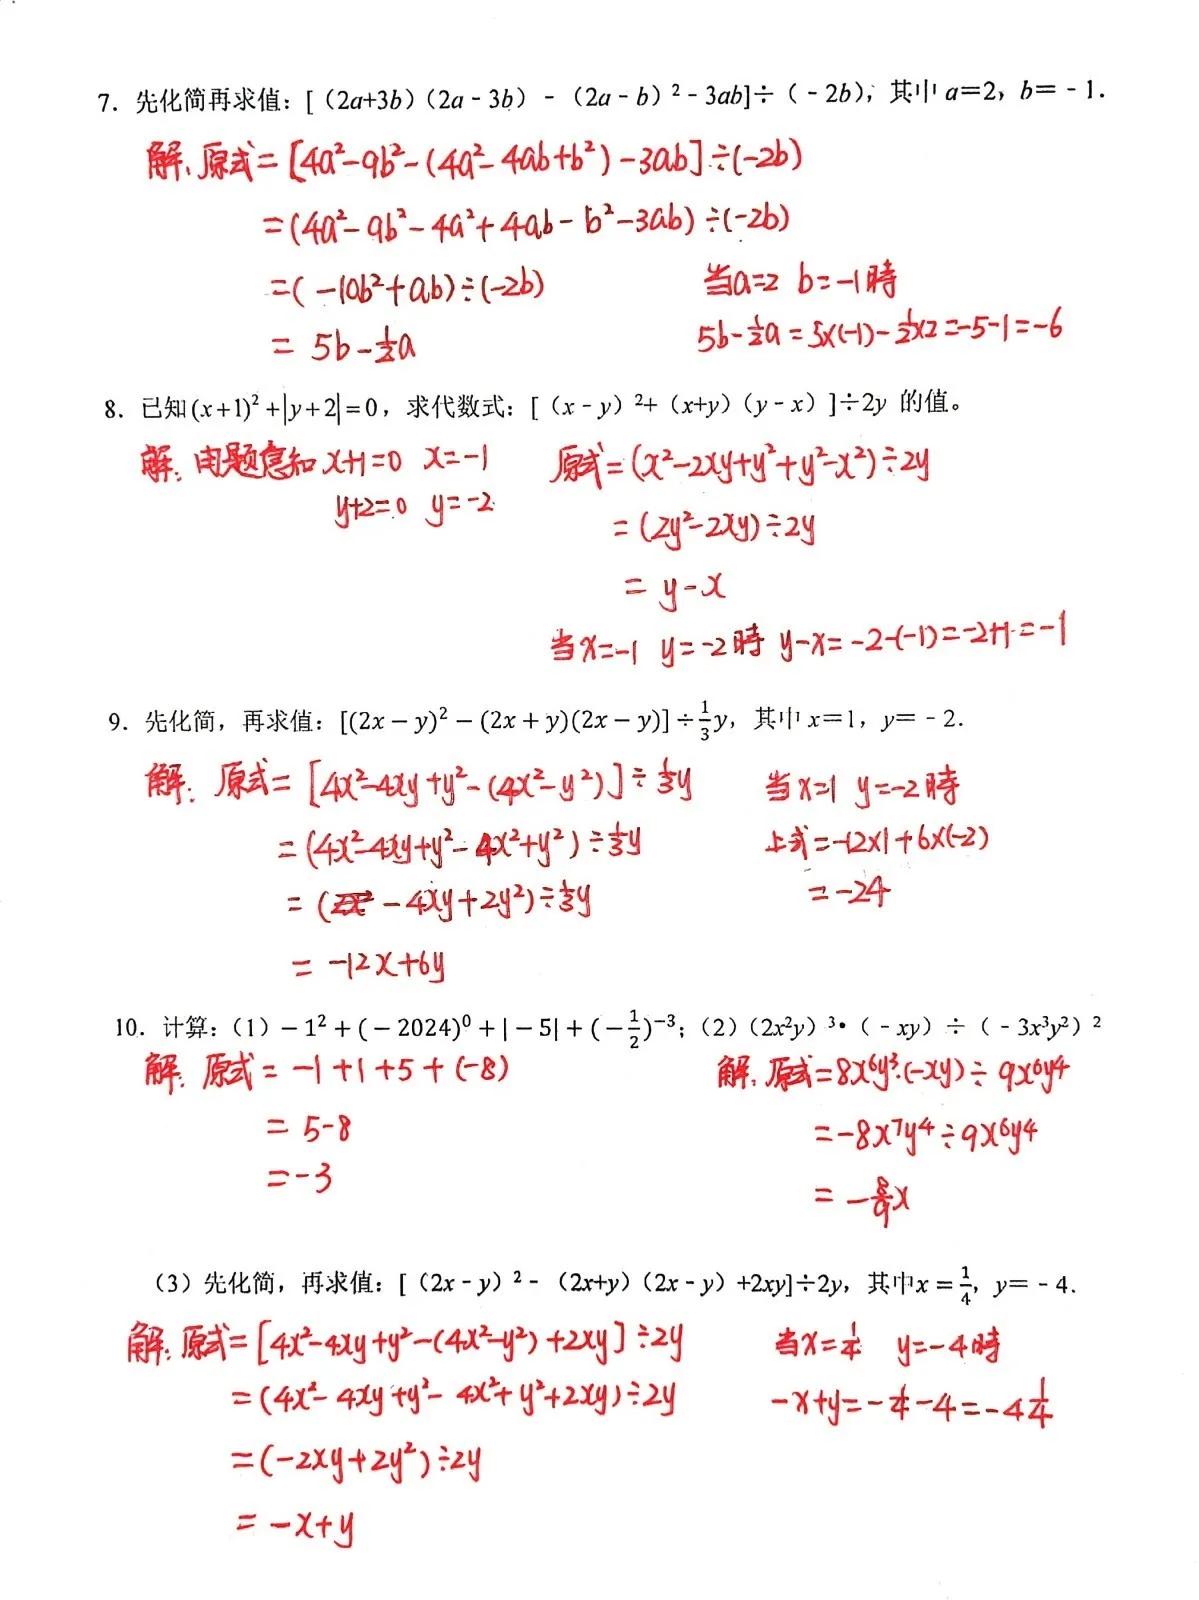 7. 先化简再求值：[（2a+3b）（2a﹣3b）﹣（2a﹣b）²﹣3ab]÷（﹣2b），其中 a＝2，b＝﹣1.
解：原式=[4a²-9b²-(4a²-4ab+b²)-3ab]÷(-2b)
=(4a²-9b²-4a²+4ab-b²-3ab)÷(-2b)
=(-10b²+ab)÷(-2b)
当a=2 b=-1時
=5b-½a
5b-½a=5×(-1)-½×2=-5-1=-6
8. 已知(x+1)²+|y+2|=0，求代数式：[（x﹣y）²+（x+y）（y﹣x）]÷2y 的值。
解：由题意知 x+1=0 x=-1
y+2=0 y=-2
原式=(x²-2xy+y²+y²-x²)÷2y
=(2y²-2xy)÷2y
=y-x
当x=-1 y=-2時 y-x=-2-(-1)=-2+1=-1
9. 先化简，再求值：[(2x－y)²－(2x＋y)(2x－y)]÷⅓y，其中 x＝1，y＝﹣2.
解：原式=[4x²-4xy+y²-(4x²-y²)]÷⅓y
=(4x²-4xy+y²-4x²+y²)÷⅓y
=(-4xy+2y²)÷⅓y
=-12x+6y
当x=1 y=-2時
上式=-12×1+6×(-2)
=-24
10. 计算：（1）－1²＋(－2024)⁰＋|－5|＋(－½)⁻³；（2）（2x²y）³•（﹣xy）÷（﹣3x³y²）²
解：原式=-1+1+5+(-8)
=5-8
=-3
解：原式=8x⁶y³·(-xy)÷9x⁶y⁴
=-8x⁷y⁴÷9x⁶y⁴
=-8/9x
（3）先化简，再求值：[（2x﹣y）²﹣（2x+y）（2x﹣y）+2xy]÷2y，其中x＝¼，y＝﹣4.
解：原式=[4x²-4xy+y²-(4x²-y²)+2xy]÷2y
=(4x²-4xy+y²-4x²+y²+2xy)÷2y
=(-2xy+2y²)÷2y
=-x+y
当x=¼ y=-4時
-x+y=-¼-4=-4¼